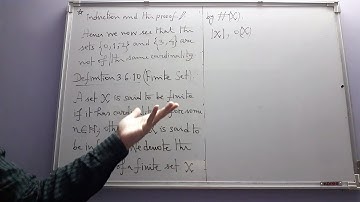 * Induction and this proof.
Hence we now see that the
sets {0,1,2} and {3,4} are
not of the same cardinality.
Definition 3.6.10 (Finite Set):
A set X is said to be finite
if it has some
n∈ℕ, X is said to
be denote the
of a finite set X
by #(X).
|X|,